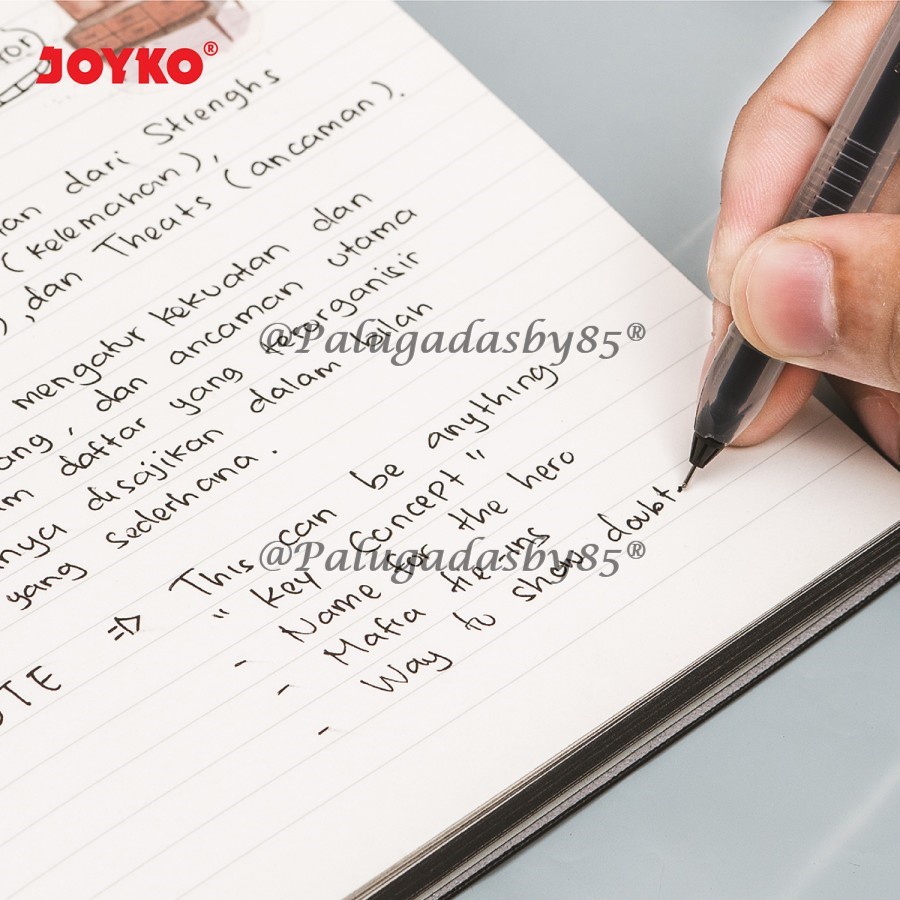 JOYKO®
an dari Strenghs
(Kelemahan),
), dan Theats (ancaman).
mengatur kekuatan dan
ang, dan ancaman utama
m daftar yang terorganisir
nya disajikan dalam
yang sederhana.
@Palugadasby85®
OTE => This can be anything
" Key Concept "
- Name for the hero
- Mafia tie-ins
- Way to show doubt
@Palugadasby85®